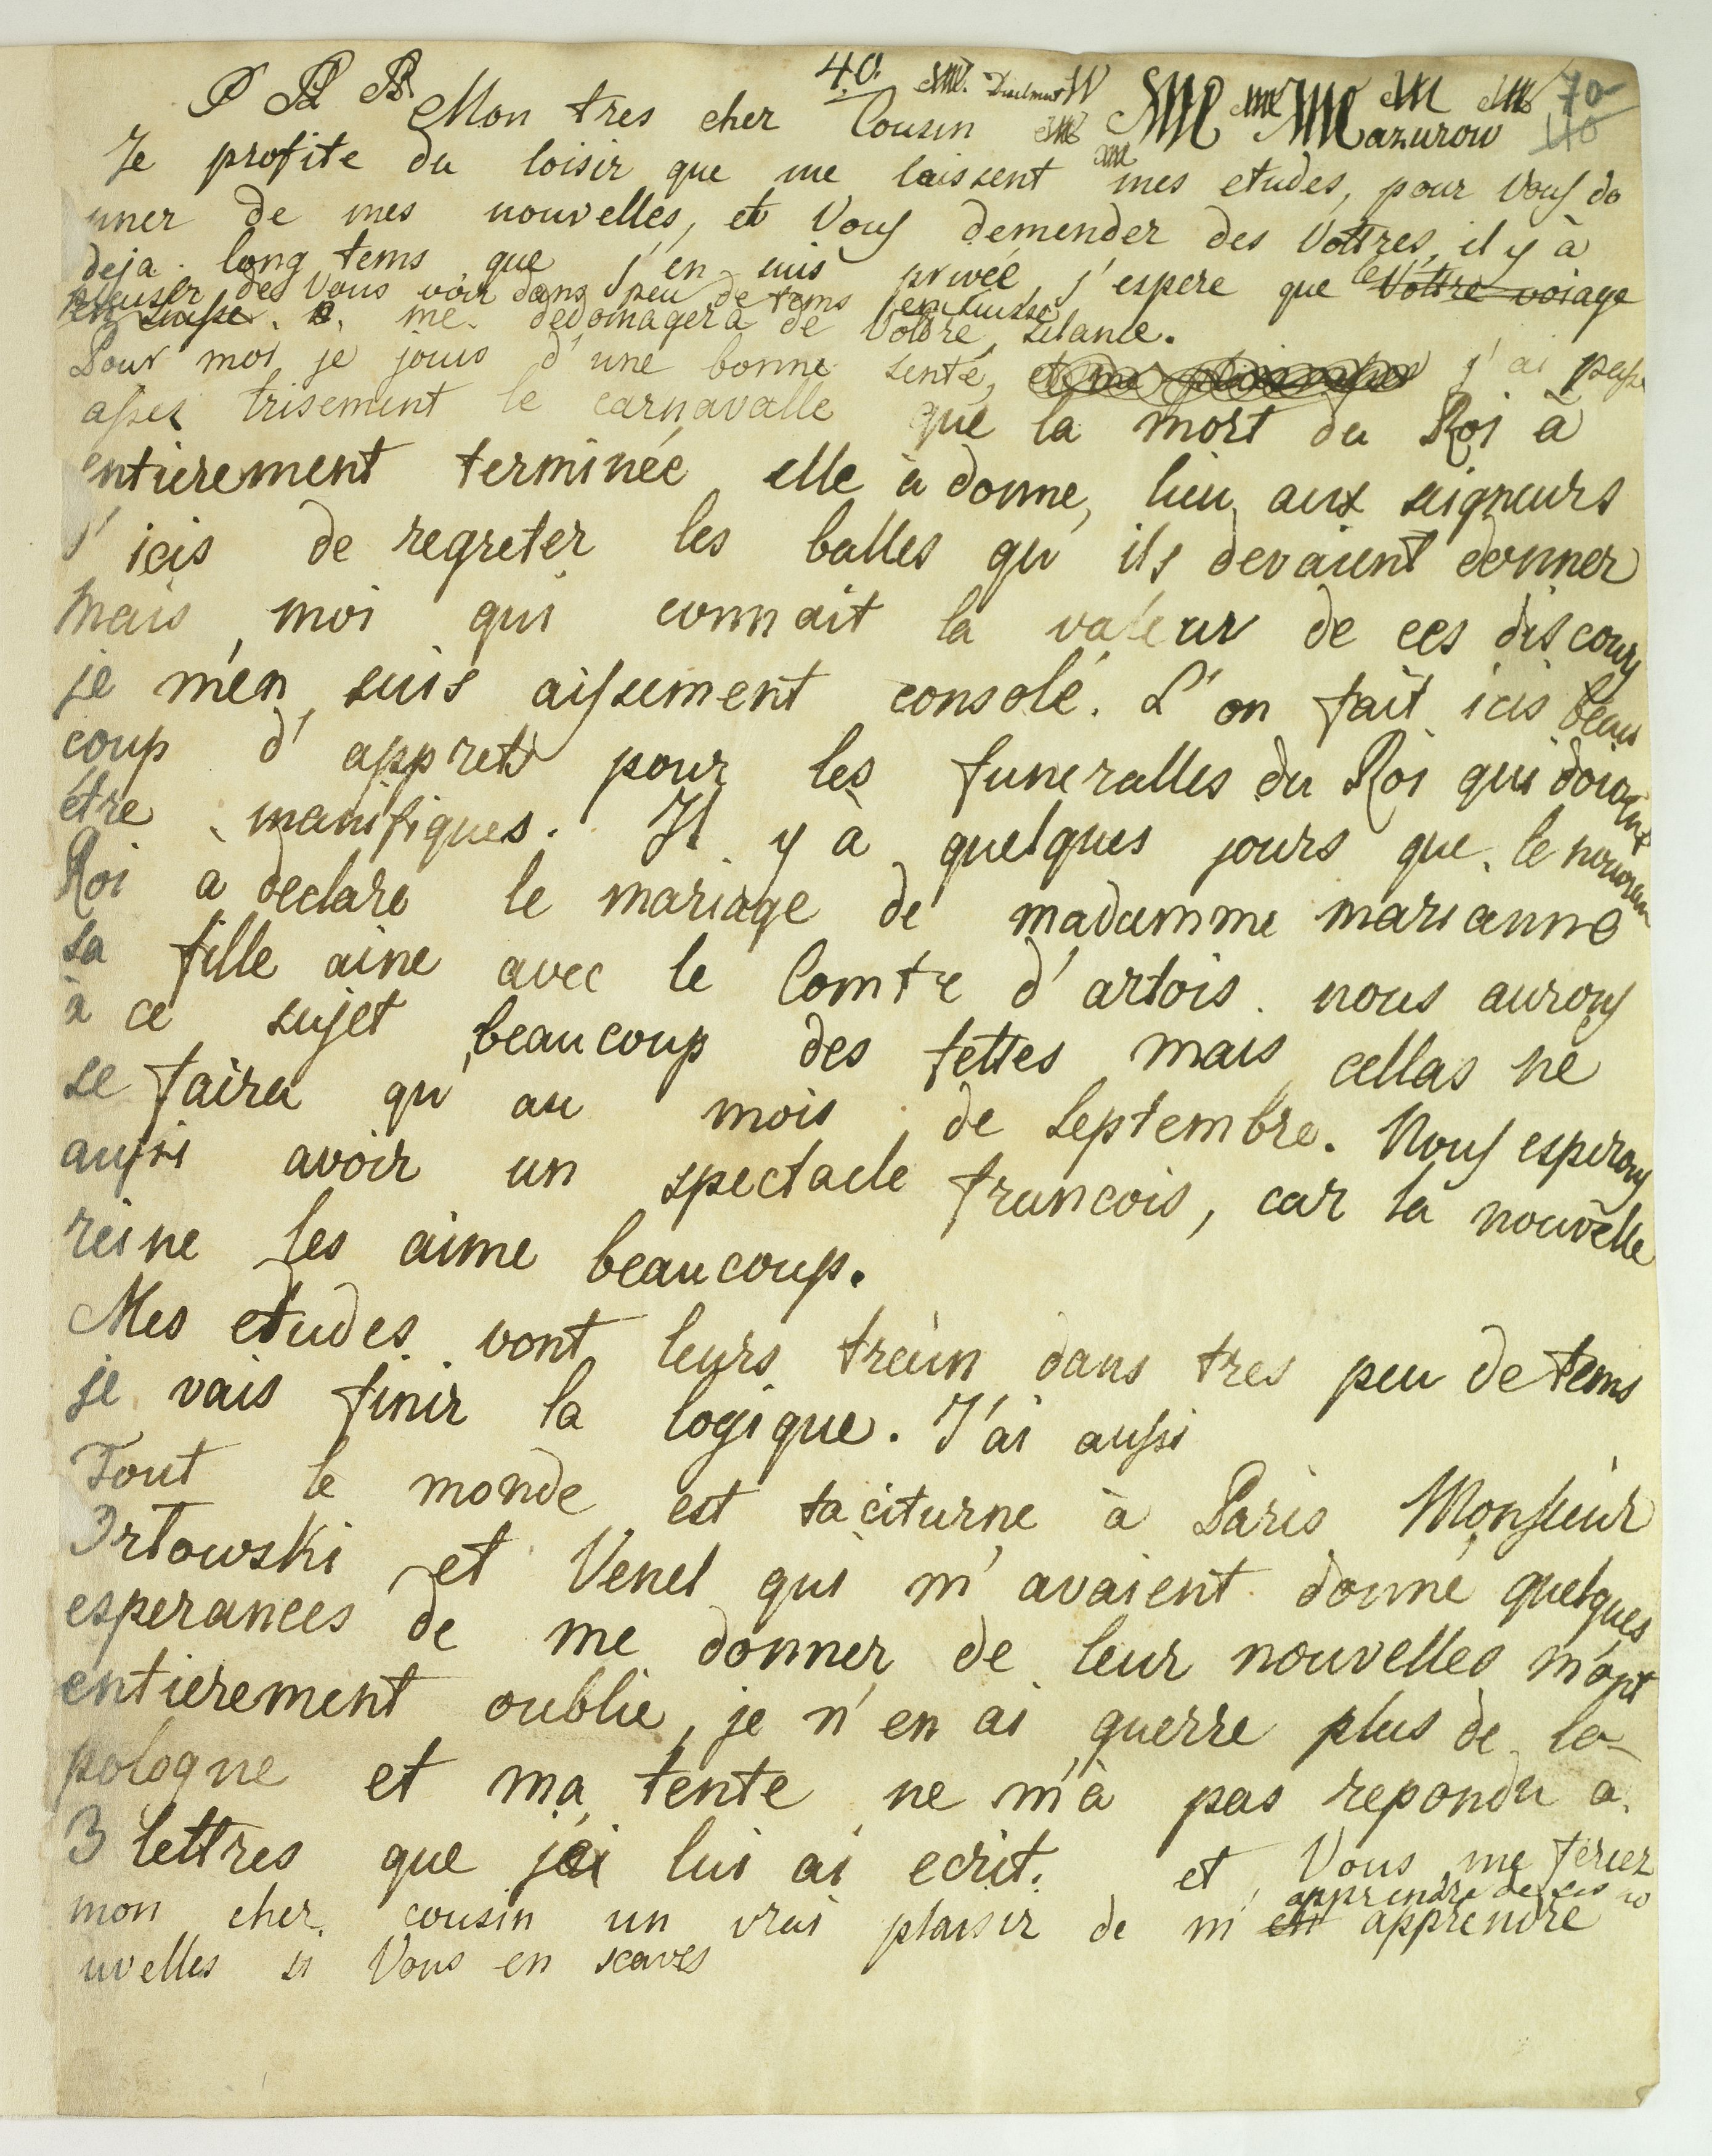 P P B 40. M. M M M M M 70
Mon tres cher Cousin M M Mazurow 40
Je profite du loisir que me laissent mes etudes, pour Vous do
nner de mes nouvelles, et Vous demender des Vottres, il y à
deja long tems que j'en suis privée, j'espere que le Vottre voiage
plaisir des Vous voir dans peu de tems en suisse
en suisse me dedomagera de Vottre silance.
Pour moi je jouis d'une bonne senté, et me j'ai passe
assez trisement le carnavalle que la mort du Roi à
entierement terminée elle à donne, lieu aux seigneurs
d'icis de regreter les balles qu'ils devaient donner
mais moi qui connait la valeur de ces discours
je m'en suis aissement consolé. L'on fait icis beau
coup d'apprets pour les funeralles du Roi qui doivent
être manifiques. Il y à quelques jours que le nouveau
Roi à declare le mariage de madamme marianne
sa fille aine avec le Comte d'artois. nous aurons
à ce sujet beaucoup des fettes mais cellas ne
se faira qu'au mois de Septembre. Nous esperons
aussi avoir un spectacle francois, car la nouvelle
reine les aime beaucoup.
Mes etudes vont leurs treun dans tres peu de tems
je vais finir la logique. J'ai aussi
Tout le monde est taciturne à Paris Monsieur
Ortowski et Venel qui m'avaient donné quelques
esperances de me donner de leur nouvelles m'ont
entierement oublie, je n'en ai guerre plus de la
pologne et ma tente ne m'à pas repondu a
3 lettres que j'ai lui ai ecrit. et Vous me feriez
apprendre de ses no
mon cher cousin un vrai plaisir de m'en apprendre
uvelles si Vous en scaves